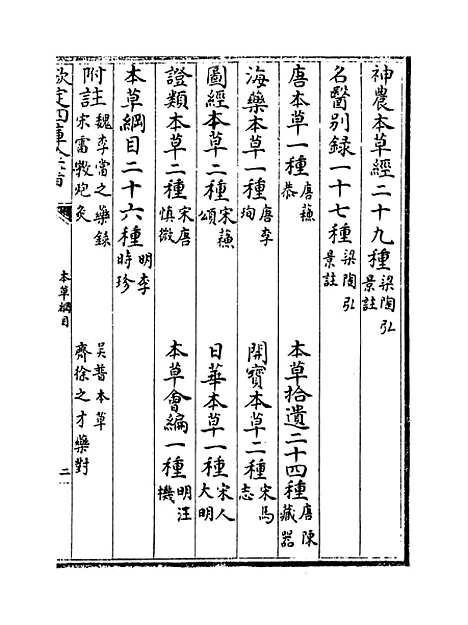 神農本草經二十九種梁陶弘景註
名醫別録一十七種梁陶弘景註
唐本草一種唐蘇恭
本草拾遺二十四種唐陳藏器
海藥本草一種唐李珣
開寶本草二種宋馬志
圖經本草二種宋蘇頌
日華本草一種宋人大明
證類本草二種宋唐慎微
本草會編一種明汪機
本草綱目二十六種明李時珍
附註魏李當之藥錄
吳普本草
宋雷斆炮灸
齊徐之才藥對
欽定四庫全書
本草綱目
二